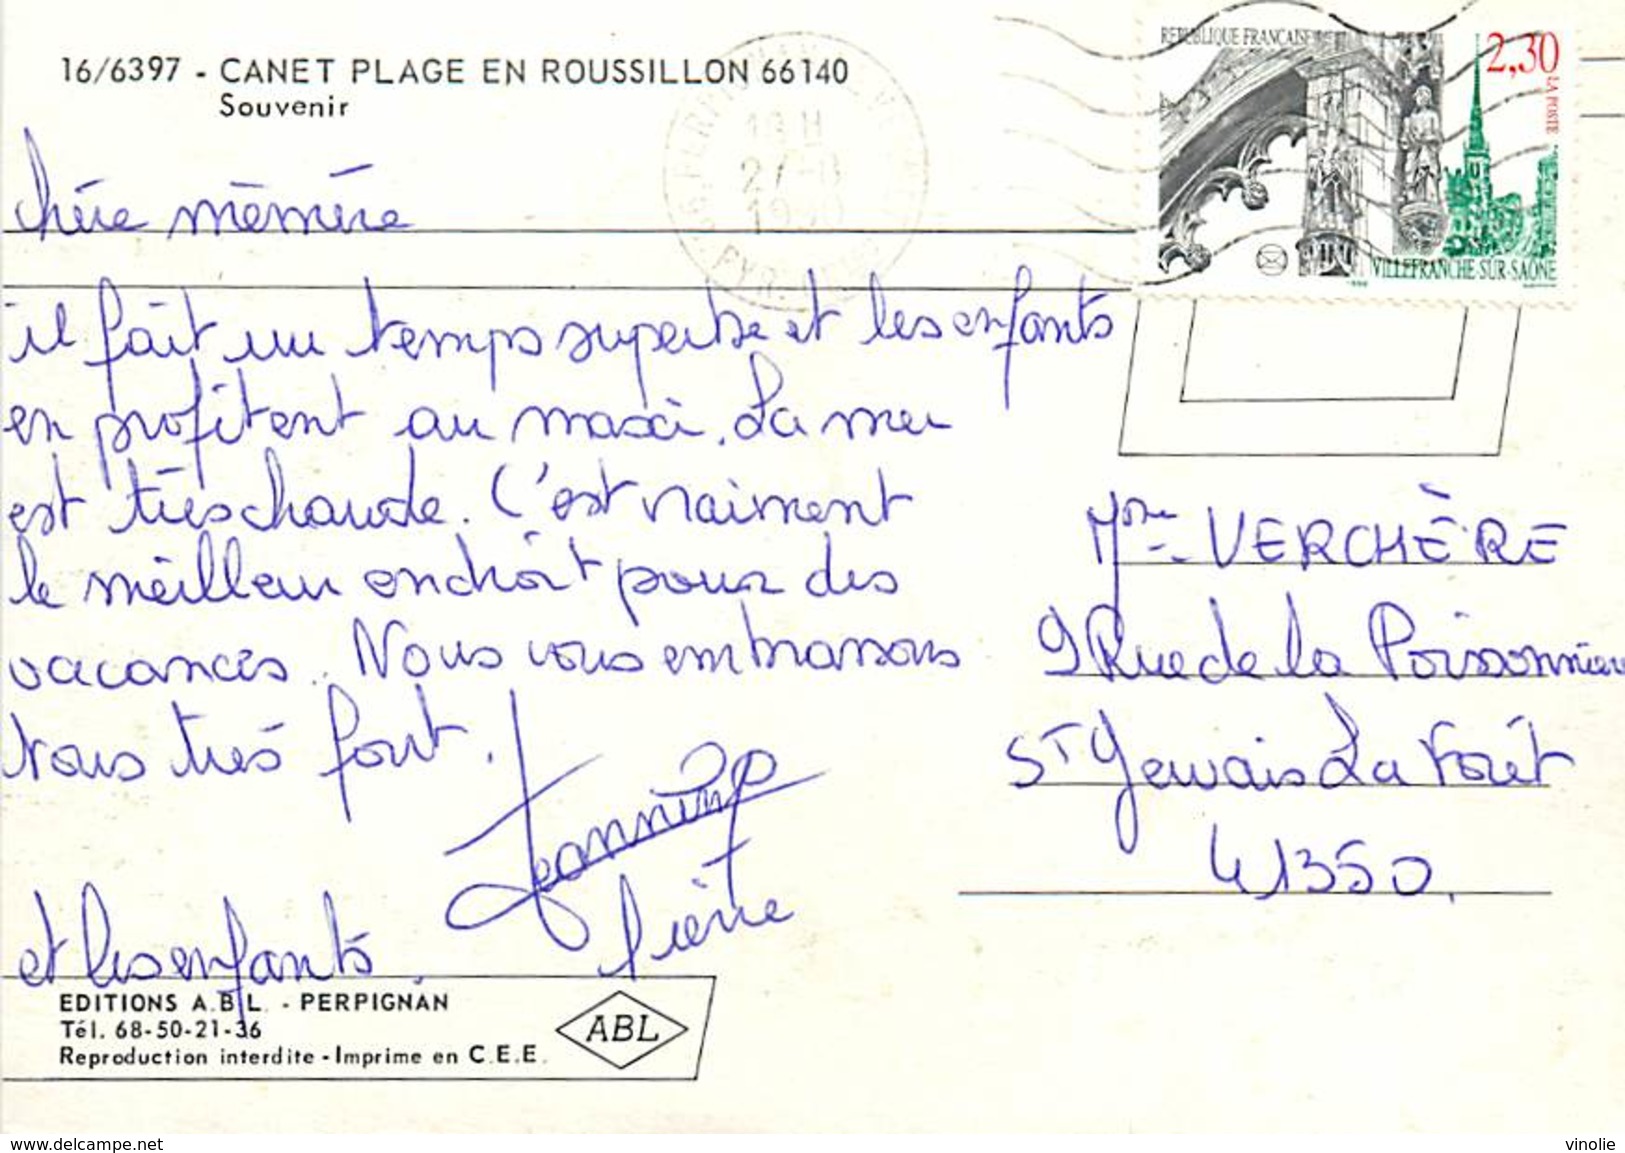 16/6397 - CANET PLAGE EN ROUSSILLON 66140
Souvenir
REPUBLIQUE FRANCAISE
2,30
LA POSTE
VILLEFRANCHE-SUR-SAÔNE
18 H
1990
chère mèmère
il fait un temps superbe et les enfants
en profitent au maxi. La mer
est très chaude. C'est vraiment
le mèilleur endroit pour des
vacances.. Nous vous embrassons
tous très fort.
Jeannine
Pierre
et les enfants.
Mme VERCHÈRE
9 Rue de la Poissonnière
ST Gervais La Forêt
41350.
EDITIONS A.B.L. - PERPIGNAN
Tél. 68-50-21-36
Reproduction interdite - Imprime en C.E.E.
ABL
www.delcampe.net
vinolie